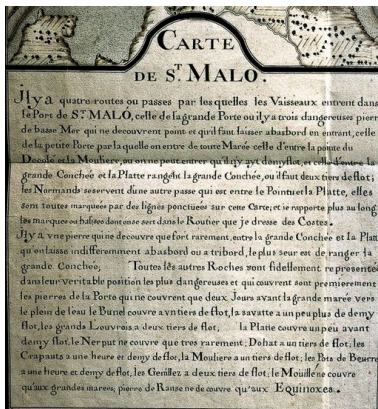 CARTE
DE S.T MALO.
Jl y a quatre routes ou passes par les quelles les Vaisseaux entrent dans
le Port de S.T MALO, celle de la grande Porte ou il y a trois dangereuses pierr
de basse Mer qui ne decouvrent point et qu'il faut laisser a basbord en entrant, celle
de la petite Porte par la quelle on entre de toute Marée celle d'entre la pointe du
Decolé et la Mouliere, ou on ne peut entrer qu'il n'y ayt demy flot, et celle d'entre la
grande Conchée et la Platte rangeât la grande Conchée, ou il faut deux tiers de flot;
les Normands se servent d'une autre passe qui est entre le Pointu et la Platte, elles
sont toutes marquées par des lignes ponctuées sur cette Carte; et je rapporte plus au long
les marques ou balises dont on se sert dans le Routier que je dresse des Costes.
Jl y a une pierre qui ne decouvre que fort rarement, entre la grande Conchée et la Platt
qu'on laisse indifferemment a basbord ou a tribord, le plus seur est de ranger la
grande Conchée; Toutes les autres Roches sont fidellement representé
dans leur veritable position les plus dangereuses et qui couvrent sont premierement
les pierres de la Porte qui ne couvrent que deux Jours avant la grande marée vers
le plein de l'eau le Bunel couvre a un tiers de flot, la savatte a un peu plus de demy
flot, les grands Louvrois a deux tiers de flot, la Platte couvre un peu avant
demy flot, le Nerput ne couvre que tres rarement; Dohat a un tiers de flot, les
Crapauts a une heure et demy de flot, la Mouliere a un tiers de flot; les Pots de Beurre
a une heure et demy de flot, les Genillez a deux tiers de flot; le Mouille ne couvre
qu'aux grandes marées; pierre de Ranse ne de couvre qu'aux Equinoxes.